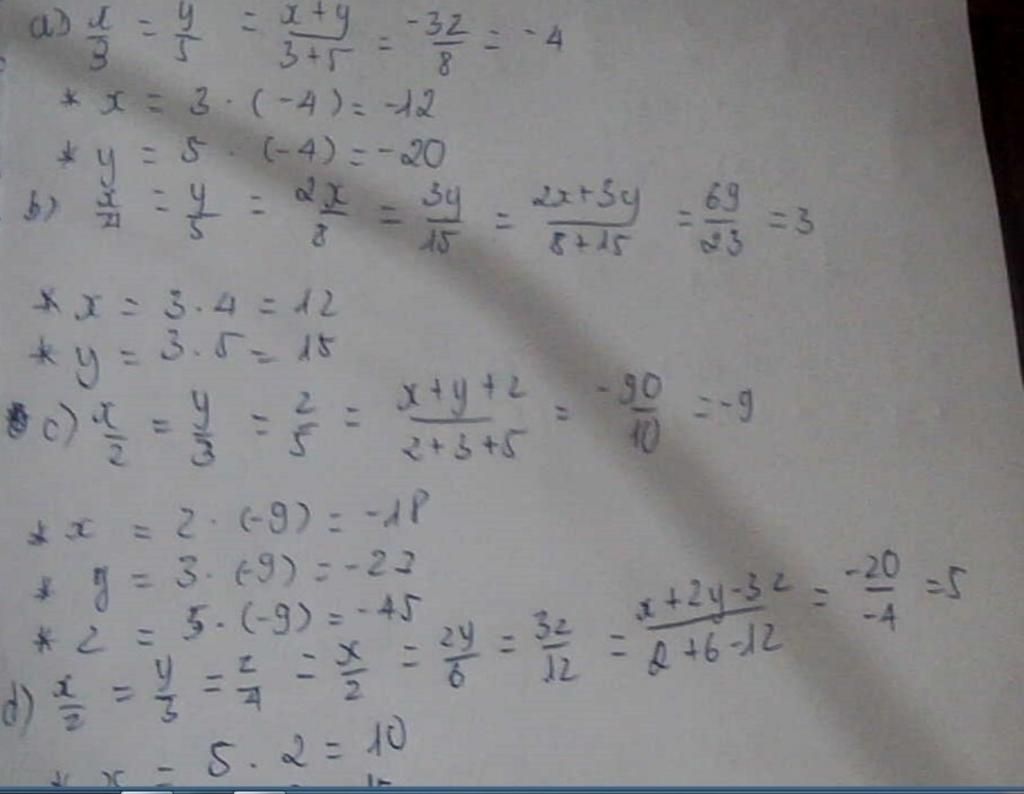 a) x/3 = y/5 = (x+y)/(3+5) = -32/8 = -4
* x = 3 . (-4) = -12
* y = 5 . (-4) = -20
b) x/4 = y/5 = 2x/8 = 3y/15 = (2x+3y)/(8+15) = 69/23 = 3
* x = 3.4 = 12
* y = 3.5 = 15
c) x/2 = y/3 = z/5 = (x+y+z)/(2+3+5) = -90/10 = -9
* x = 2 . (-9) = -18
* y = 3 . (-9) = -27
* z = 5 . (-9) = -45
d) x/2 = y/3 = z/4 = x/2 = 2y/6 = 3z/12 = (x+2y-3z)/(2+6-12) = -20/-4 = 5
* x = 5 . 2 = 10